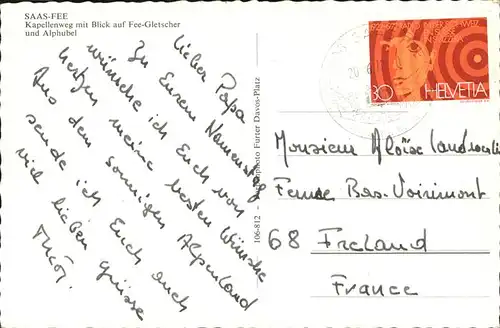 SAAS-FEE
Kapellenweg mit Blick auf Fee-Gletscher
und Alphubel
lieber Papa
Zu Eurem Namenstag
wünsche ich Euch von
herzen meine besten Wünsche
Aus dem sonnigen Alpenland
sende ich Euch auch
viel lieben grüsse
106-812 - Furter Davos-Platz
80
HELVETIA
Monsieur Aloïse
Ferme Bas-Voirimont
68 Freland
France